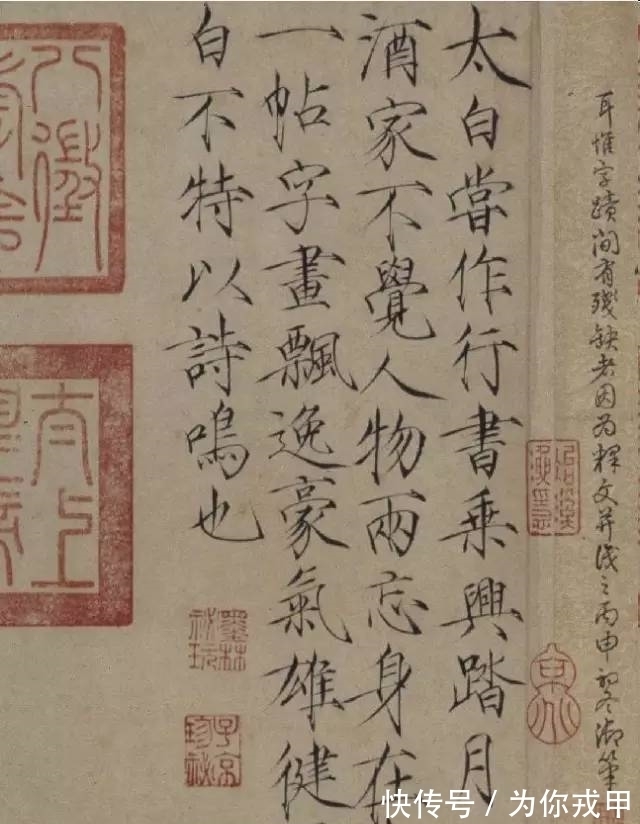 耳惟字蹟間有殘缺者因为釋文并識之丙申初冬御筆
太白嘗作行書乘興踏月
酒家不覺人物兩忘身在
一帖字畫飄逸豪氣雄健
白不特以詩鳴也
墨林祕玩
子京珍祕
八徵
太上
快传号 / 为你戎甲